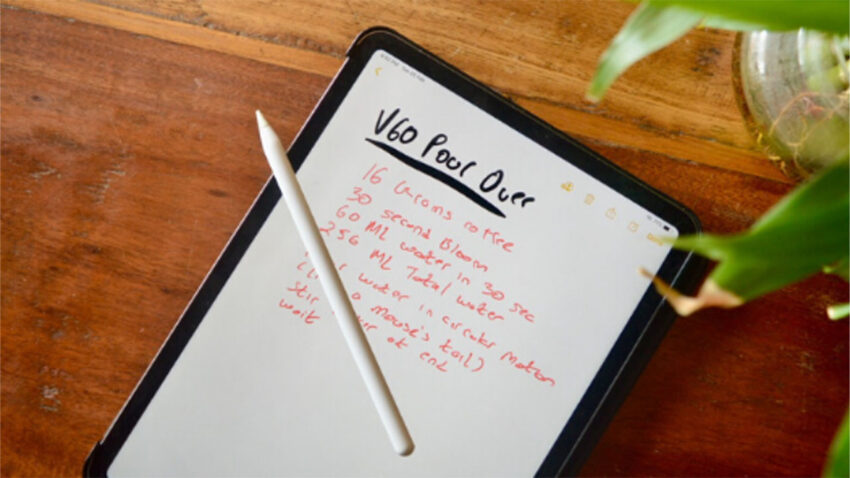 V60 Pour Over
16 Grams coffee
30 second Bloom
60 ML water in 30 sec
256 ML Total water
water in circular Motion
Stir a Mouse's tail)
wait at end